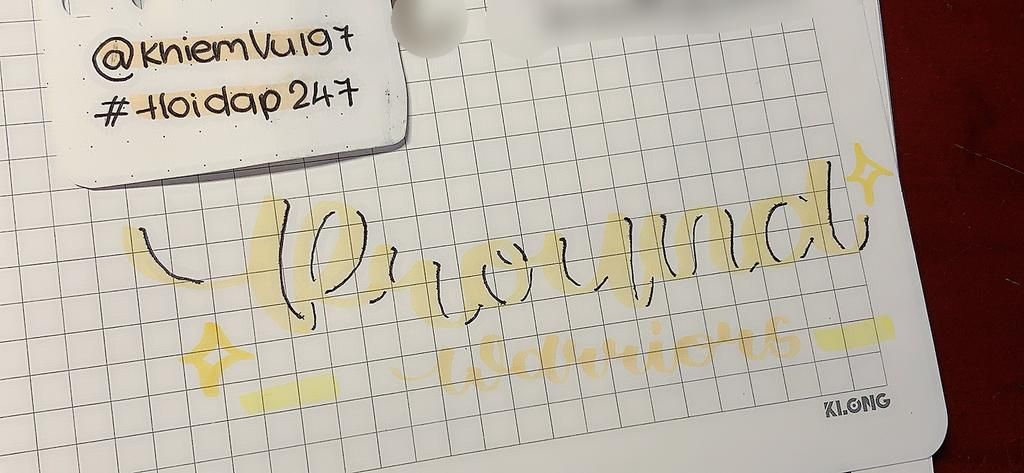 @KhiemVu197
#Hoidap247
Pround
Warriors
KLONG